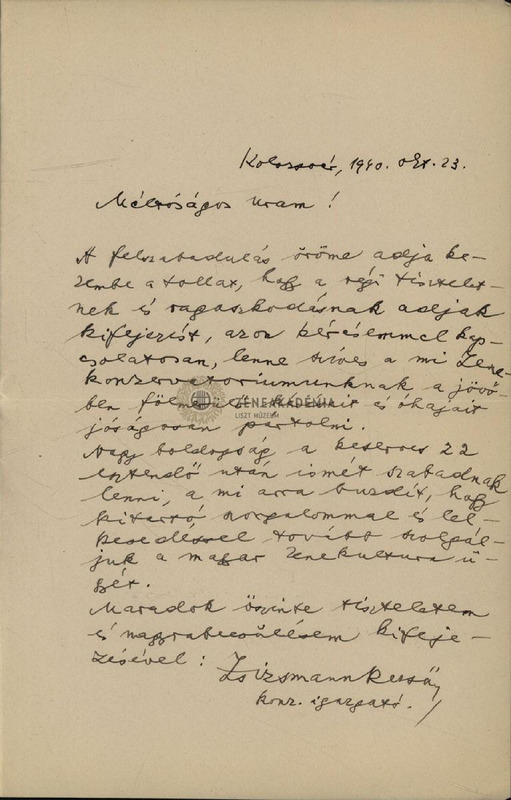 Kolozsvár, 1940. okt. 23.
Méltóságos Uram!
A felszabadulás öröme adja ke-
zembe a tollat, hogy a régi tisztelet-
nek és ragaszkodásnak adjak
kifejezést, azon kérésemmel kap-
csolatosan, lenne szíves a mi Zene-
konzervatoriumunknak a jövő-
ben és óhajait
jóságosan pártolni.
Nagy boldogság a keserves 22
esztendő után ismét szabadnak
lenni, a mi arra buzdít, hogy
kitartó szorgalommal és lel-
kesedéssel tovább szolgál-
juk a magyar zenekultura ü-
gyét.
Maradok őszinte tiszteletem
és nagyrabecsülésem kifeje-
zésével: Zsizsmann Rezső
konz. igazgató.
ZENEAKADÉMIA
LISZT MÚZEUM